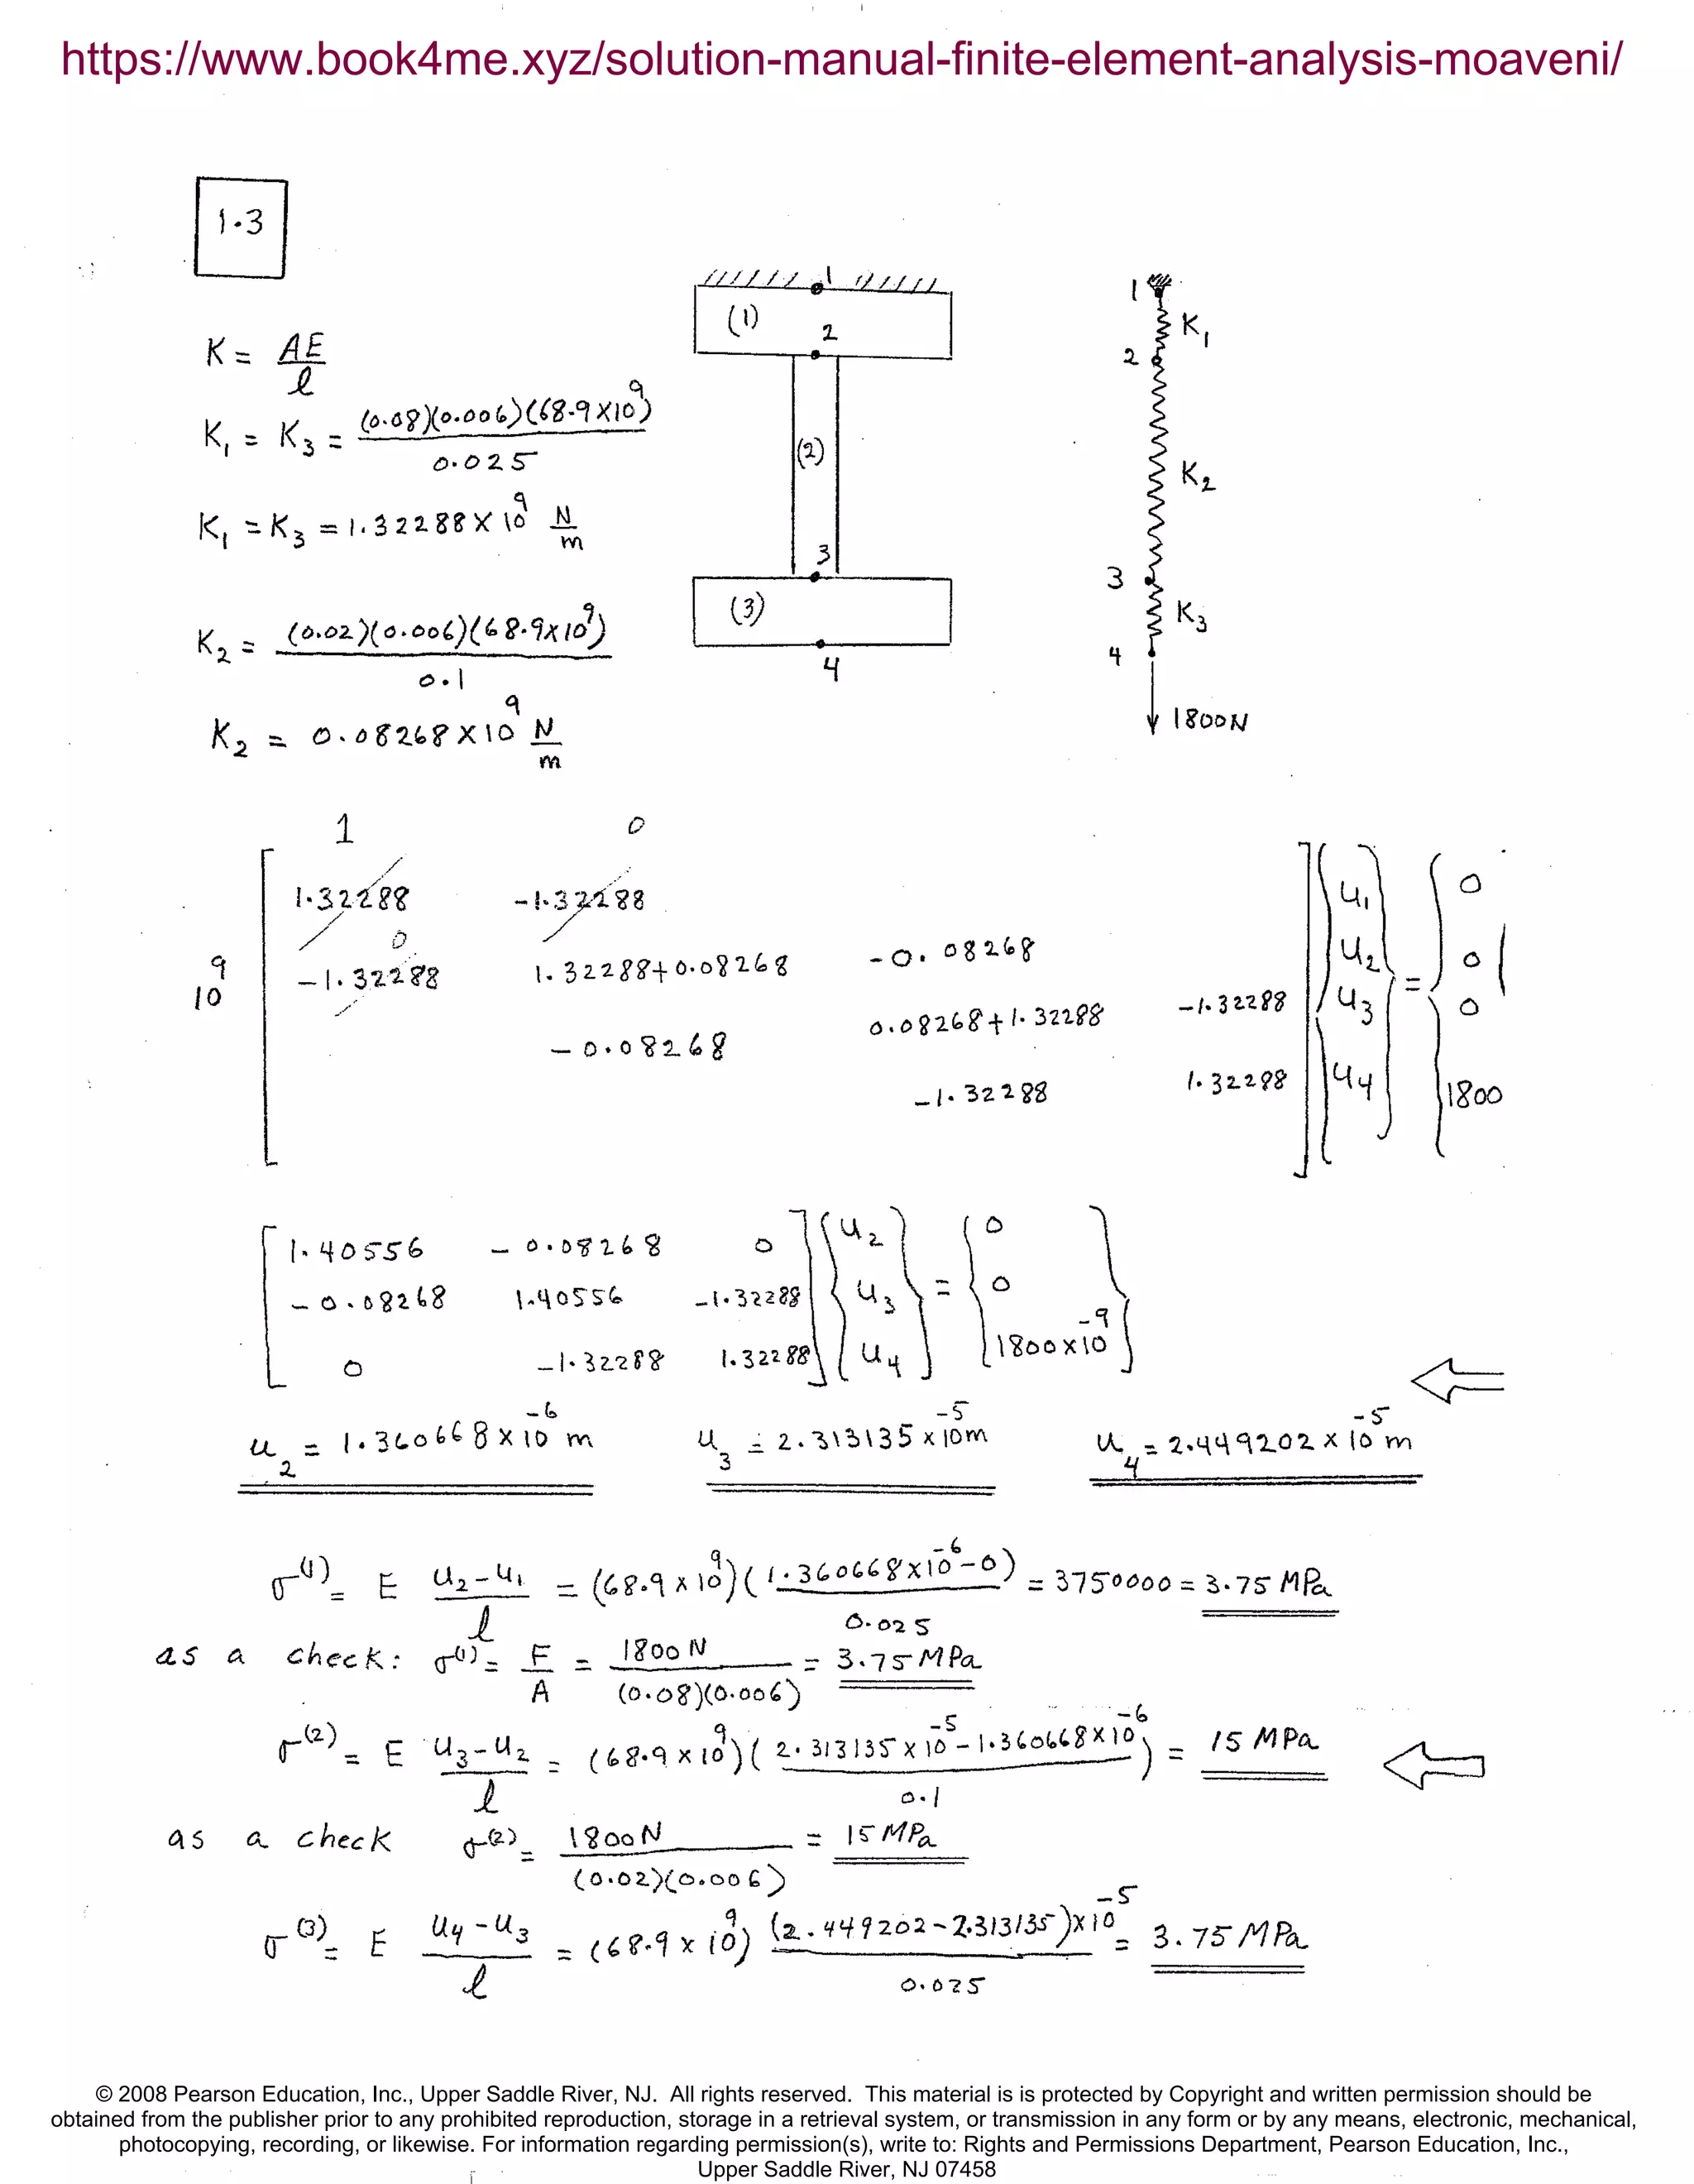 https://www.book4me.xyz/solution-manual-finite-element-analysis-moaveni/
1.3
K = AE / l
K₁ = K₃ = (0.08)(0.006)(68.9×10⁹) / 0.025
K₁ = K₃ = 1.32288×10⁹ N/m
K₂ = (0.02)(0.006)(68.9×10⁹) / 0.1
K₂ = 0.08268×10⁹ N/m
1
(1)
2
(2)
3
(3)
4
1
K₁
2
K₂
3
K₃
4
1800N
1 0
1.32288 -1.32288 u₁ 0
0
10⁹ -1.32288 1.32288+0.08268 -0.08268 u₂ = 0
-0.08268 0.08268+1.32288 -1.32288 u₃ 0
-1.32288 1.32288 u₄ 1800
1.40556 -0.08268 0 u₂ 0
-0.08268 1.40556 -1.32288 u₃ = 0
0 -1.32288 1.32288 u₄ 1800×10⁻⁹
u₂ = 1.360668×10⁻⁶ m u₃ = 2.313135×10⁻⁵ m u₄ = 2.449202×10⁻⁵ m
σ⁽¹⁾ = E (u₂-u₁) / l = (68.9×10⁹)(1.360668×10⁻⁶-0 / 0.025) = 3750000 = 3.75 MPa
as a check: σ⁽¹⁾ = F / A = 1800 N / (0.08)(0.006) = 3.75 MPa
σ⁽²⁾ = E (u₃-u₂) / l = (68.9×10⁹)(2.313135×10⁻⁵-1.360668×10⁻⁶ / 0.1) = 15 MPa
as a check σ⁽²⁾ = 1800N / (0.02)(0.006) = 15 MPa
σ⁽³⁾ = E (u₄-u₃) / l = (68.9×10⁹) (2.449202-2.313135)×10⁻⁵ / 0.025 = 3.75 MPa
© 2008 Pearson Education, Inc., Upper Saddle River, NJ. All rights reserved. This material is is protected by Copyright and written permission should be
obtained from the publisher prior to any prohibited reproduction, storage in a retrieval system, or transmission in any form or by any means, electronic, mechanical,
photocopying, recording, or likewise. For information regarding permission(s), write to: Rights and Permissions Department, Pearson Education, Inc.,
Upper Saddle River, NJ 07458